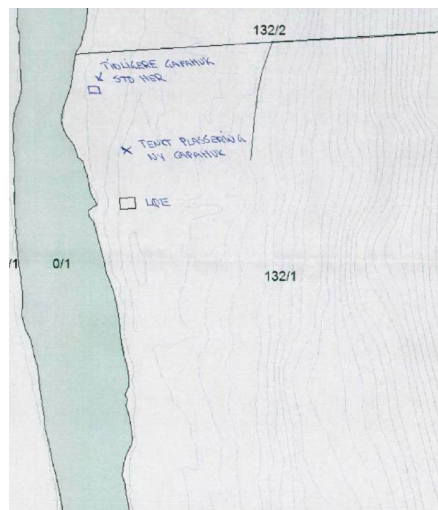 132/2
TIDLIGERE GAPAHUK
STO HER
TENKT PLASSERING
NY GAPAHUK
LØE
/1
0/1
132/1